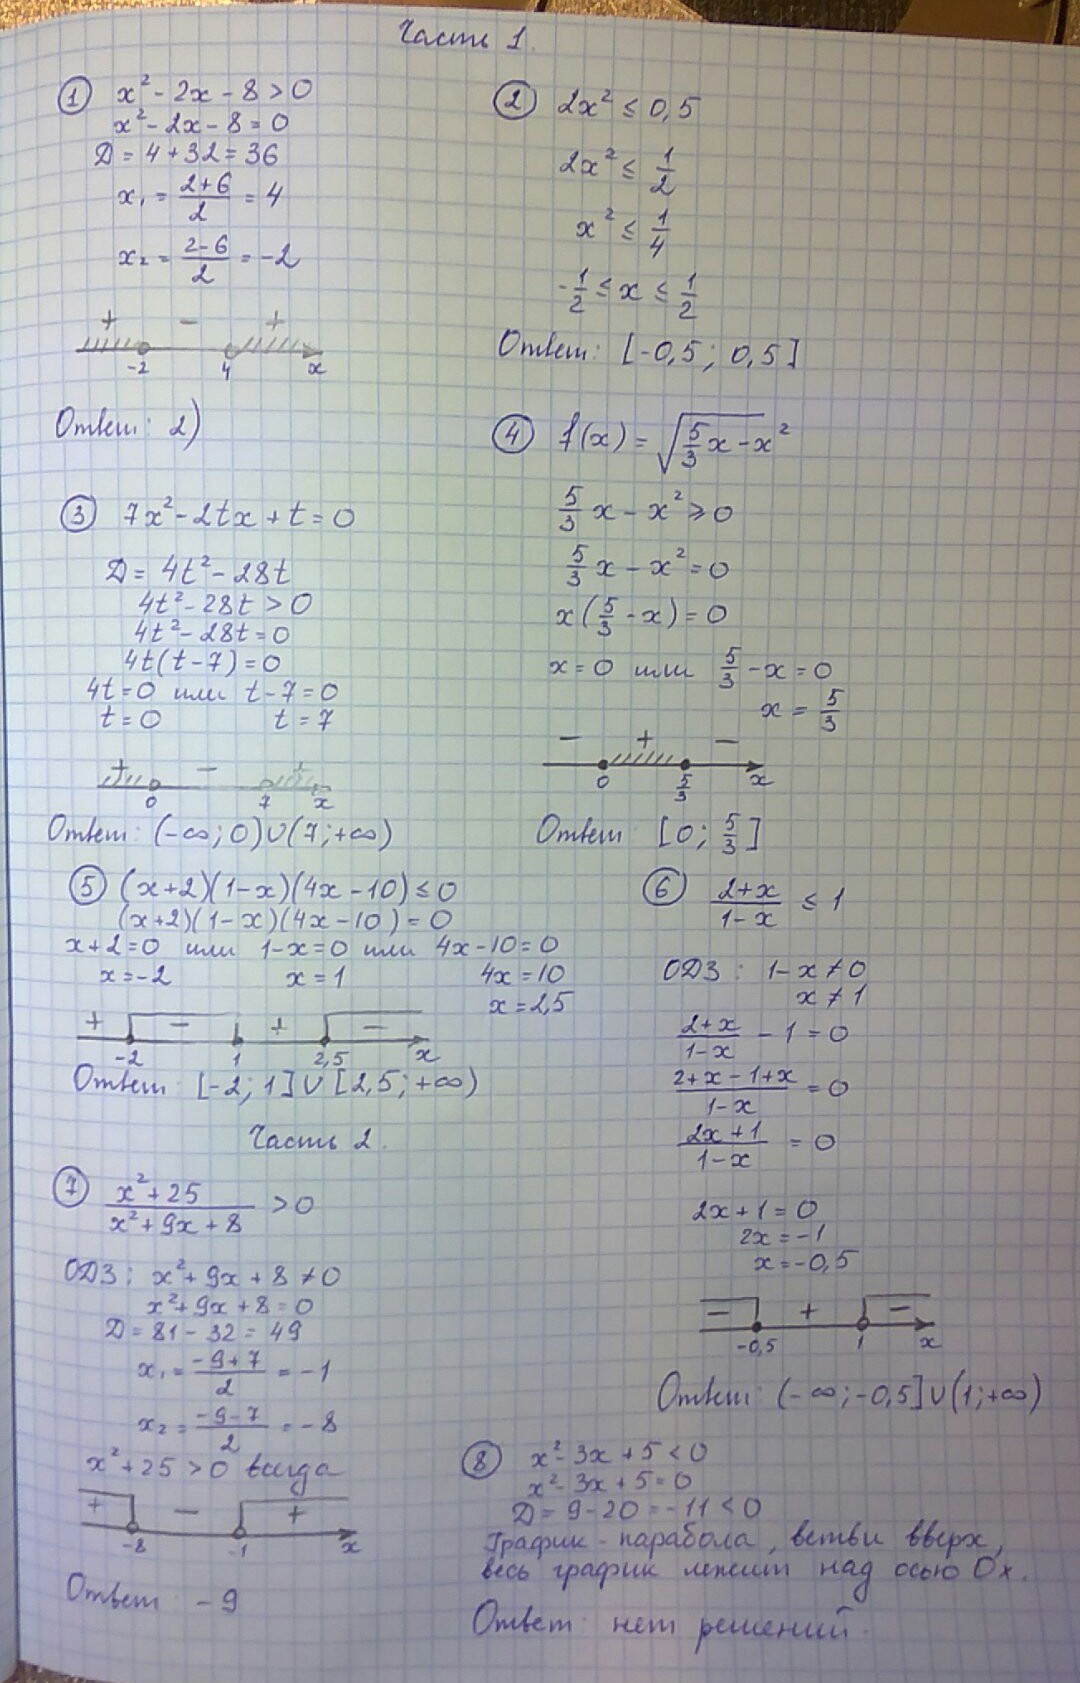 Часть 1.
① x² - 2x - 8 > 0
x² - 2x - 8 = 0
D = 4 + 32 = 36
x₁ = (2+6)/2 = 4
x₂ = (2-6)/2 = -2
+ - +
-2 4 x
Ответ: 2)
② 2x² ≤ 0,5
2x² ≤ 1/2
x² ≤ 1/4
-1/2 ≤ x ≤ 1/2
Ответ: [-0,5; 0,5]
③ 7x² - 2tx + t = 0
D = 4t² - 28t
4t² - 28t > 0
4t² - 28t = 0
4t(t - 7) = 0
4t = 0 или t - 7 = 0
t = 0 t = 7
+ - +
0 7 x
Ответ: (-∞; 0)∪(7; +∞)
④ f(x) = √(5/3 x - x²)
5/3 x - x² ≥ 0
5/3 x - x² = 0
x(5/3 - x) = 0
x = 0 или 5/3 - x = 0
x = 5/3
- + -
0 5/3 x
Ответ: [0; 5/3]
⑤ (x+2)(1-x)(4x-10) ≤ 0
(x+2)(1-x)(4x-10) = 0
x+2=0 или 1-x=0 или 4x-10=0
x=-2 x=1 4x=10
x=2,5
+ - + -
-2 1 2,5 x
Ответ: [-2; 1]∪[2,5; +∞)
⑥ (2+x)/(1-x) ≤ 1
ОДЗ: 1-x ≠ 0
x ≠ 1
(2+x)/(1-x) - 1 = 0
(2+x-1+x)/(1-x) = 0
(2x+1)/(1-x) = 0
2x+1 = 0
2x = -1
x = -0,5
- + -
-0,5 1 x
Ответ: (-∞; -0,5]∪(1; +∞)
Часть 2.
⑦ (x²+25)/(x²+9x+8) > 0
ОДЗ: x²+9x+8 ≠ 0
x²+9x+8 = 0
D = 81 - 32 = 49
x₁ = (-9+7)/2 = -1
x₂ = (-9-7)/2 = -8
x²+25 > 0 всегда
+ - +
-8 -1 x
Ответ -9
⑧ x² - 3x + 5 < 0
x² - 3x + 5 = 0
D = 9 - 20 = -11 < 0
График - парабола, ветви вверх,
весь график лежит над осью Ox.
Ответ: нет решений.